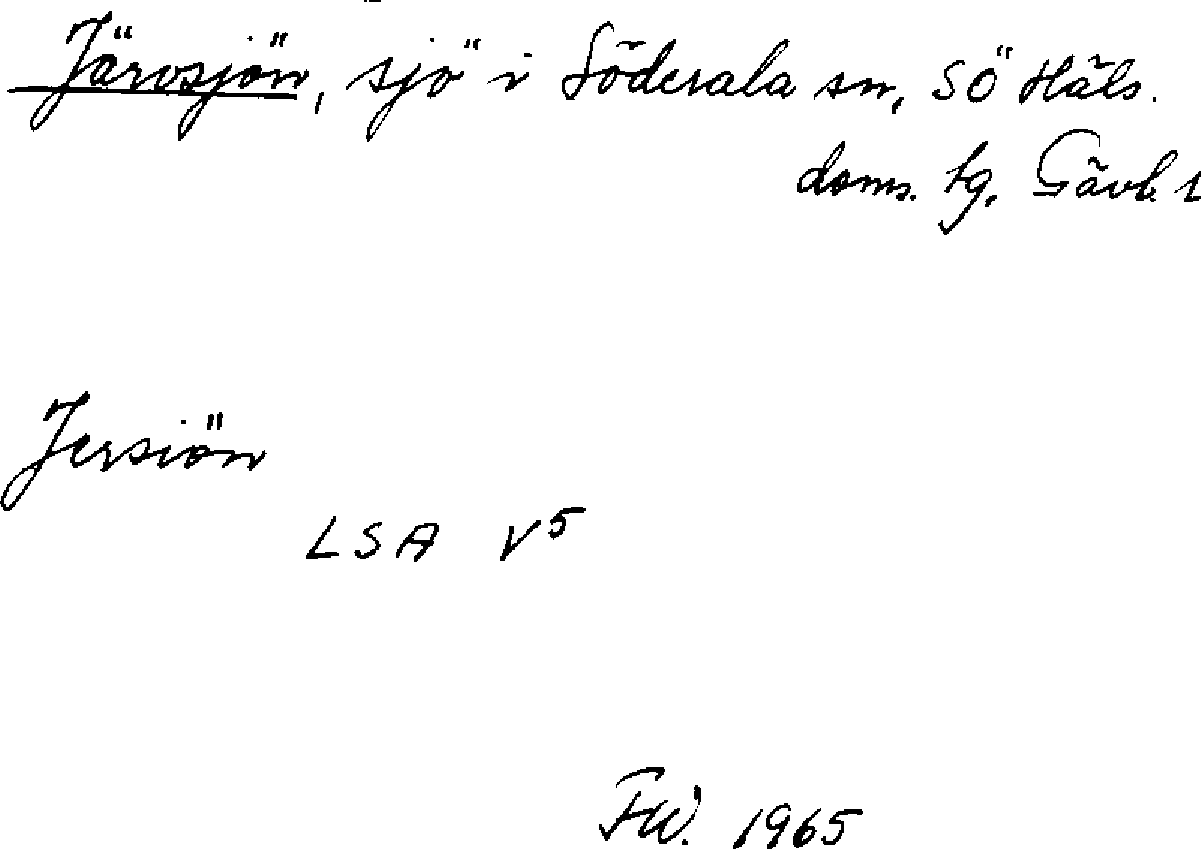 Järvsjön, sjö i Söderala sn, SÖ Häls.
doms. tg. Gävl. l
Jersiön
LSA V5
FW. 1965